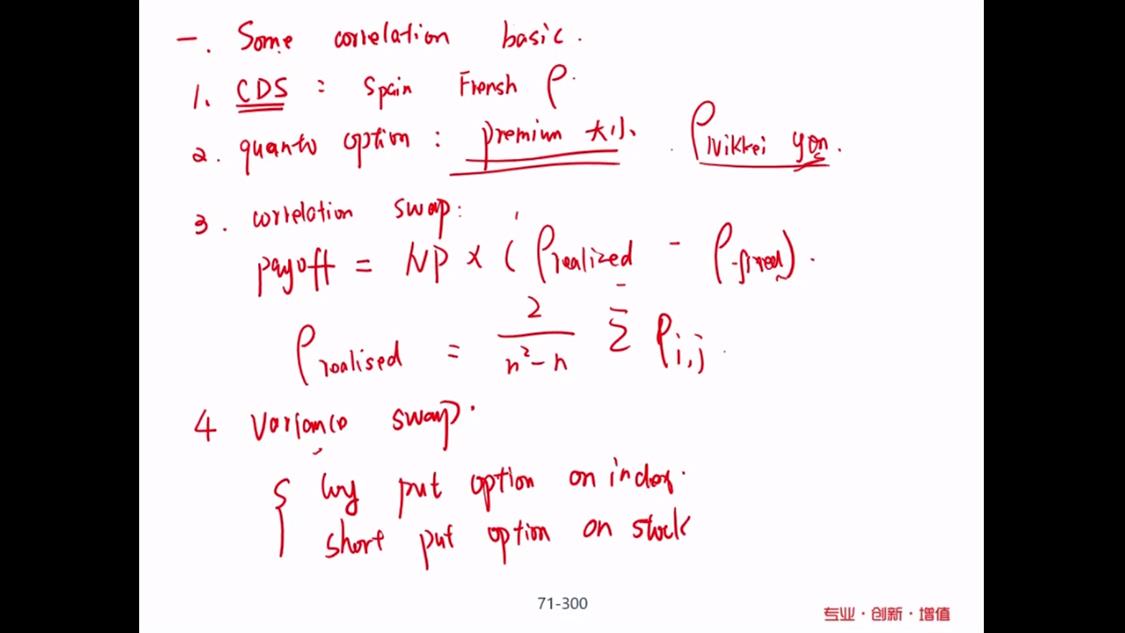 一. Some correlation basic.
1. CDS : Spain Frensh ρ.
2. quanto option : premium 大小. ρNikkei yen.
3. correlation swap:
payoff = NP × ( ρrealized - ρfixed ).
ρrealised = 2/(n²-n) Σ ρi,j
4 Variance swap.
{ buy put option on index.
short put option on stock
71-300
专业·创新·增值